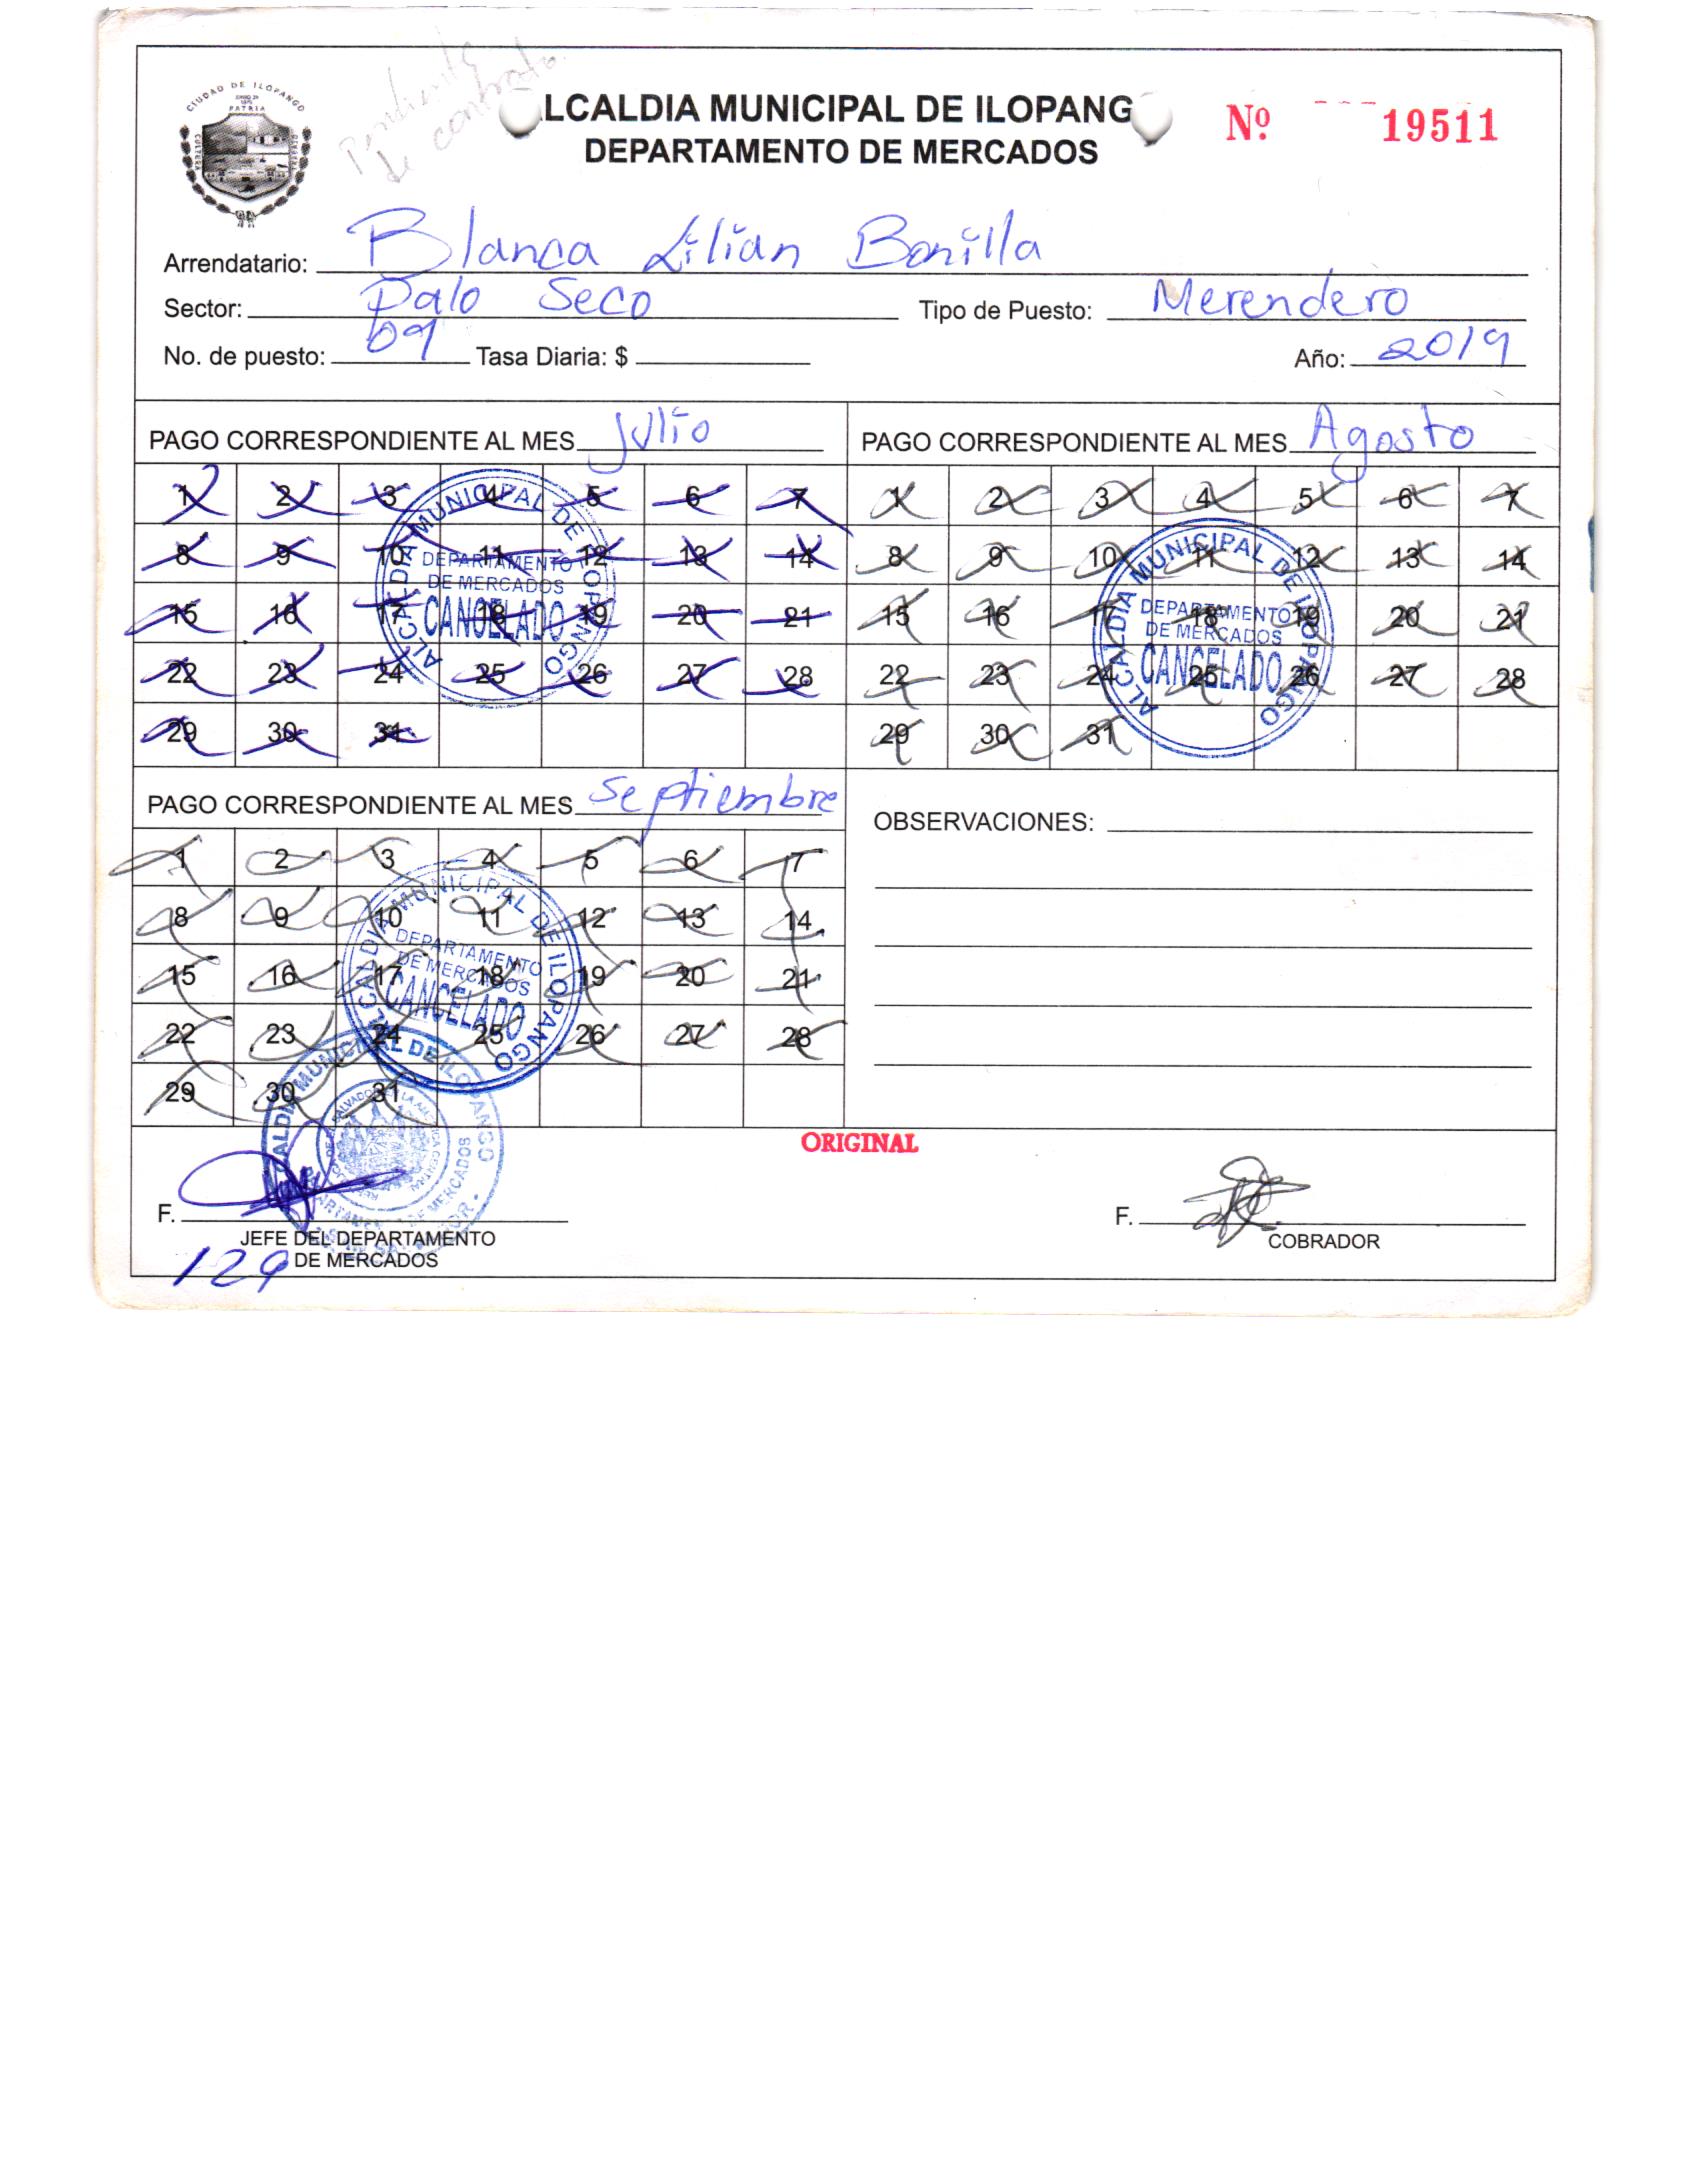 Pendiente
de contrato
CIUDAD DE ILOPANGO
PATRIA
CULTURA
LCALDIA MUNICIPAL DE ILOPANG
DEPARTAMENTO DE MERCADOS
Nº 19511
Arrendatario: Blanca Lilian Bonilla
Sector: Palo Seco Tipo de Puesto: Merendero
No. de puesto: 09 Tasa Diaria: $ Año: 2019
PAGO CORRESPONDIENTE AL MES Julio
1 2 3 4 5 6 7
8 9 10 11 12 13 14
15 16 17 18 19 20 21
22 23 24 25 26 27 28
29 30 31
ALCALDIA MUNICIPAL DE ILOPANGO
DEPARTAMENTO
DE MERCADOS
CANCELADO
PAGO CORRESPONDIENTE AL MES Agosto
1 2 3 4 5 6 7
8 9 10 11 12 13 14
15 16 17 18 19 20 21
22 23 24 25 26 27 28
29 30 31
ALCALDIA MUNICIPAL DE ILOPANGO
DEPARTAMENTO
DE MERCADOS
CANCELADO
PAGO CORRESPONDIENTE AL MES Septiembre
1 2 3 4 5 6 7
8 9 10 11 12 13 14
15 16 17 18 19 20 21
22 23 24 25 26 27 28
29 30 31
ALCALDIA MUNICIPAL DE ILOPANGO
DEPARTAMENTO
DE MERCADOS
CANCELADO
OBSERVACIONES:
ALCALDIA MUNICIPAL DE ILOPANGO
ORIGINAL
F.
JEFE DEL DEPARTAMENTO
DE MERCADOS
129
F.
COBRADOR